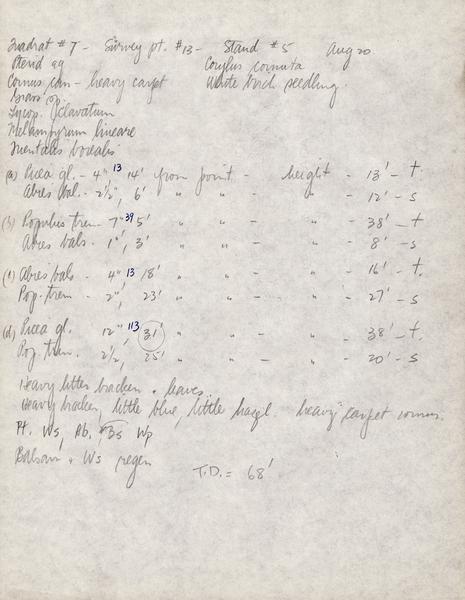 Quadrat #7 - Survey pt. #13 - Stand #5 Aug 20
Pterid aq Corylus cornuta
Cornus can - heavy carpet White birch seedling.
Grass sp.
Lycop. clavatum
Melampyrum lineare
Trientalis borealis
(a) Picea gl. - 4" 13 14' from point - height - 13' - t.
Abies bal. - 2½", 6' " " - " - 12' - s
(b) Populus trem - 7" 39 5' " " - " - 38' - t
Abies bals - 1", 3' " " - " - 8' - s
(c) Abies bals - 4" 13 18' " " - " - 16' - t.
Pop. trem - 2", 23' " " - " - 27' - s
(d) Picea gl. 12" 113 31' " " - " - 38' - t.
Pop. trem. 2½, 25' " " - " - 20' - s
Heavy litter bracken + leaves.
Heavy bracken, little blue, little hazel. heavy carpet cornus.
Pt, Ws, Ab, Bs Wp
Balsam + Ws regen
T.D. = 68'